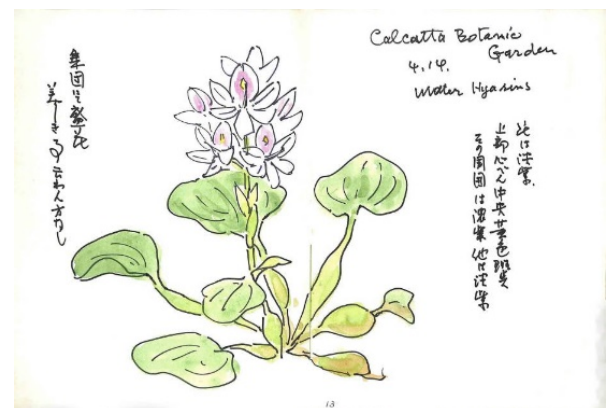 Calcatta Botanic
Garden
4.14.
Water Hyasins
花は淡紫、
上部 べん中央黄色斑点
その周囲は濃紫 他は淡紫
集団
美しき 云わん方なし
13